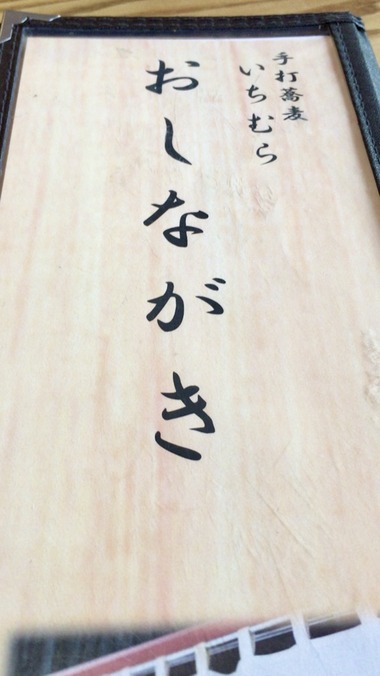 手打蕎麦
いちむら
おしながき